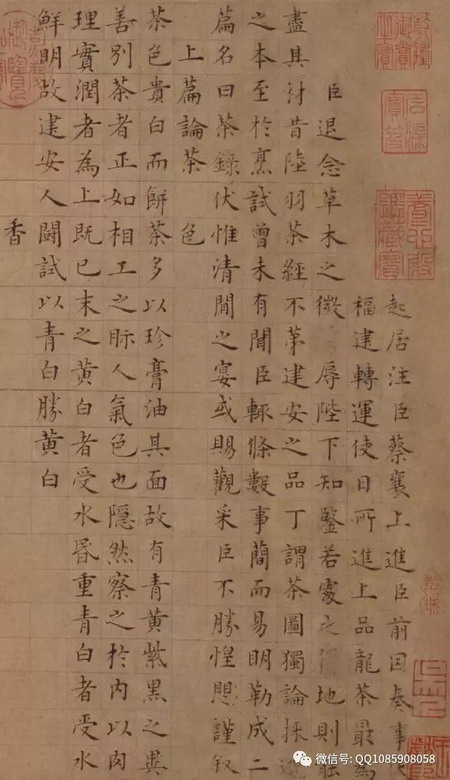 起居注臣蔡襄上進臣前因奏事
福建轉運使日所進上品龍茶最為
臣退念草木之微辱陛下知鑒若處之地則能
盡其材昔陸羽茶經不第建安之品丁謂茶圖獨論採造
之本至於烹試曾未有聞臣輒條數事簡而易明勒成二
篇名曰茶錄伏惟清閒之宴或賜觀采臣不勝惶懼謹敘
上篇論茶 色
茶色貴白而餅茶多以珍膏油其面故有青黃紫黑之異
善別茶者正如相工之眎人氣色也隱然察之於內以肉
理實潤者為上既已末之黃白者受水昏重青白者受水
鮮明故建安人鬭試以青白勝黃白
香
微信号: QQ1085908058